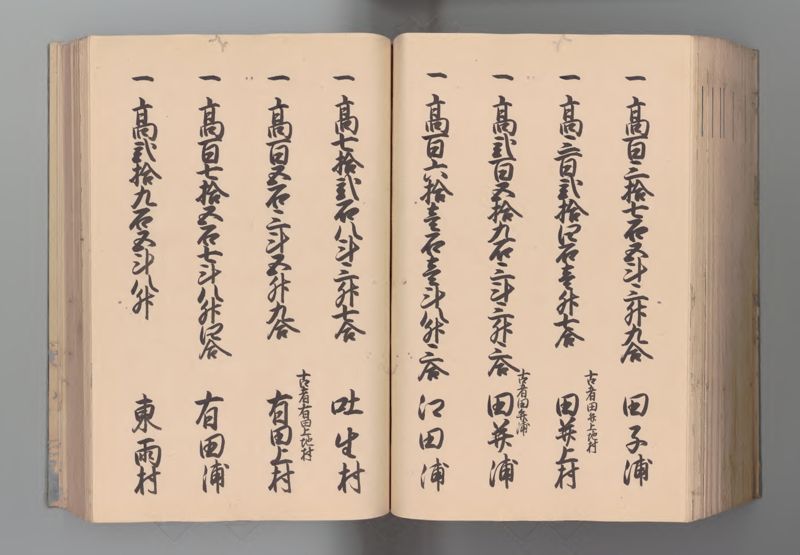 一 高百三拾七石五斗三升九合 田子浦
一 高三百弐拾四石壱升七合 古者田井上地村 田井上村
一 高弐百五拾九石三斗三升三合 古者田井浦 田井浦
一 高百六拾壱石壱斗八升三合 江田浦
一 高七拾弐石八斗三升七合 吐生村
一 高百五石三斗五升九合 古者有田上地村 有田上村
一 高百七拾五石七斗八升四合 有田浦
一 高弐拾九石五斗八升 東雨村